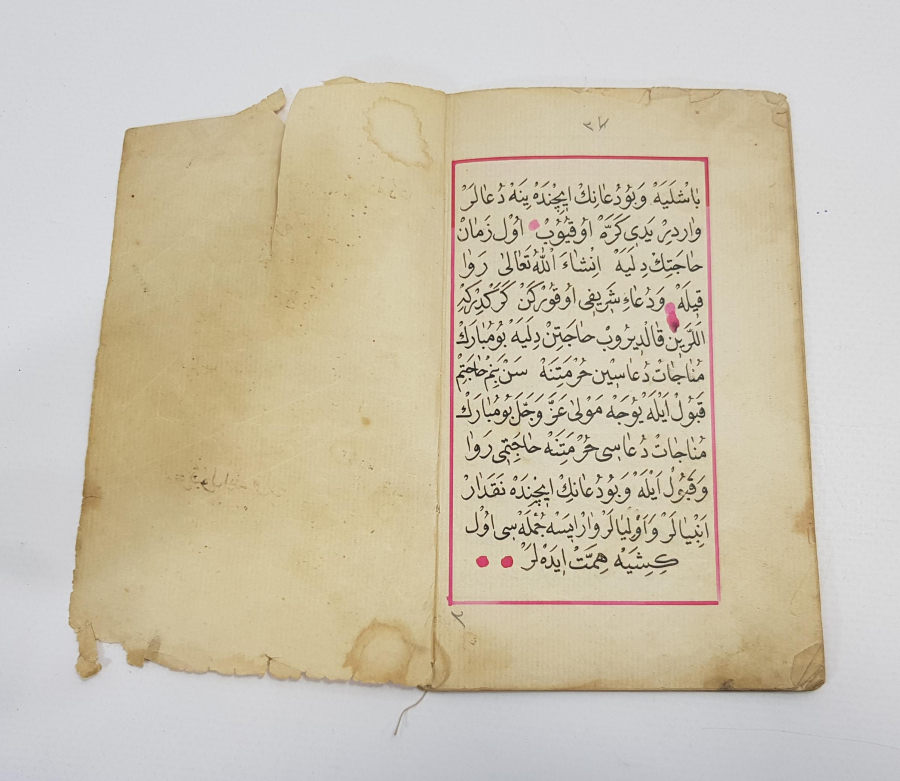 ٣٨
باشليه وبو دعانك ايچنده ينه دعالر
واردر يدى كره اوقيوب اول زمان
حاجتك دليه انشاء الله تعالى روا
قيله ودعاء شريفى اوقوركن كركدركه
اللرين قالديروب حاجتن دليه بو مبارك
مناجات دعاسين حرمتنه سن بنم حاجتم
قبول ايله يوجه مولى عز وجل بو مبارك
مناجات دعاسى حرمتنه حاجتمى روا
وقبول ايله وبو دعانك ايچنده نقدار
انبيالر واوليالر وار ايسه جمله سى اول
كشيه همت ايده لر